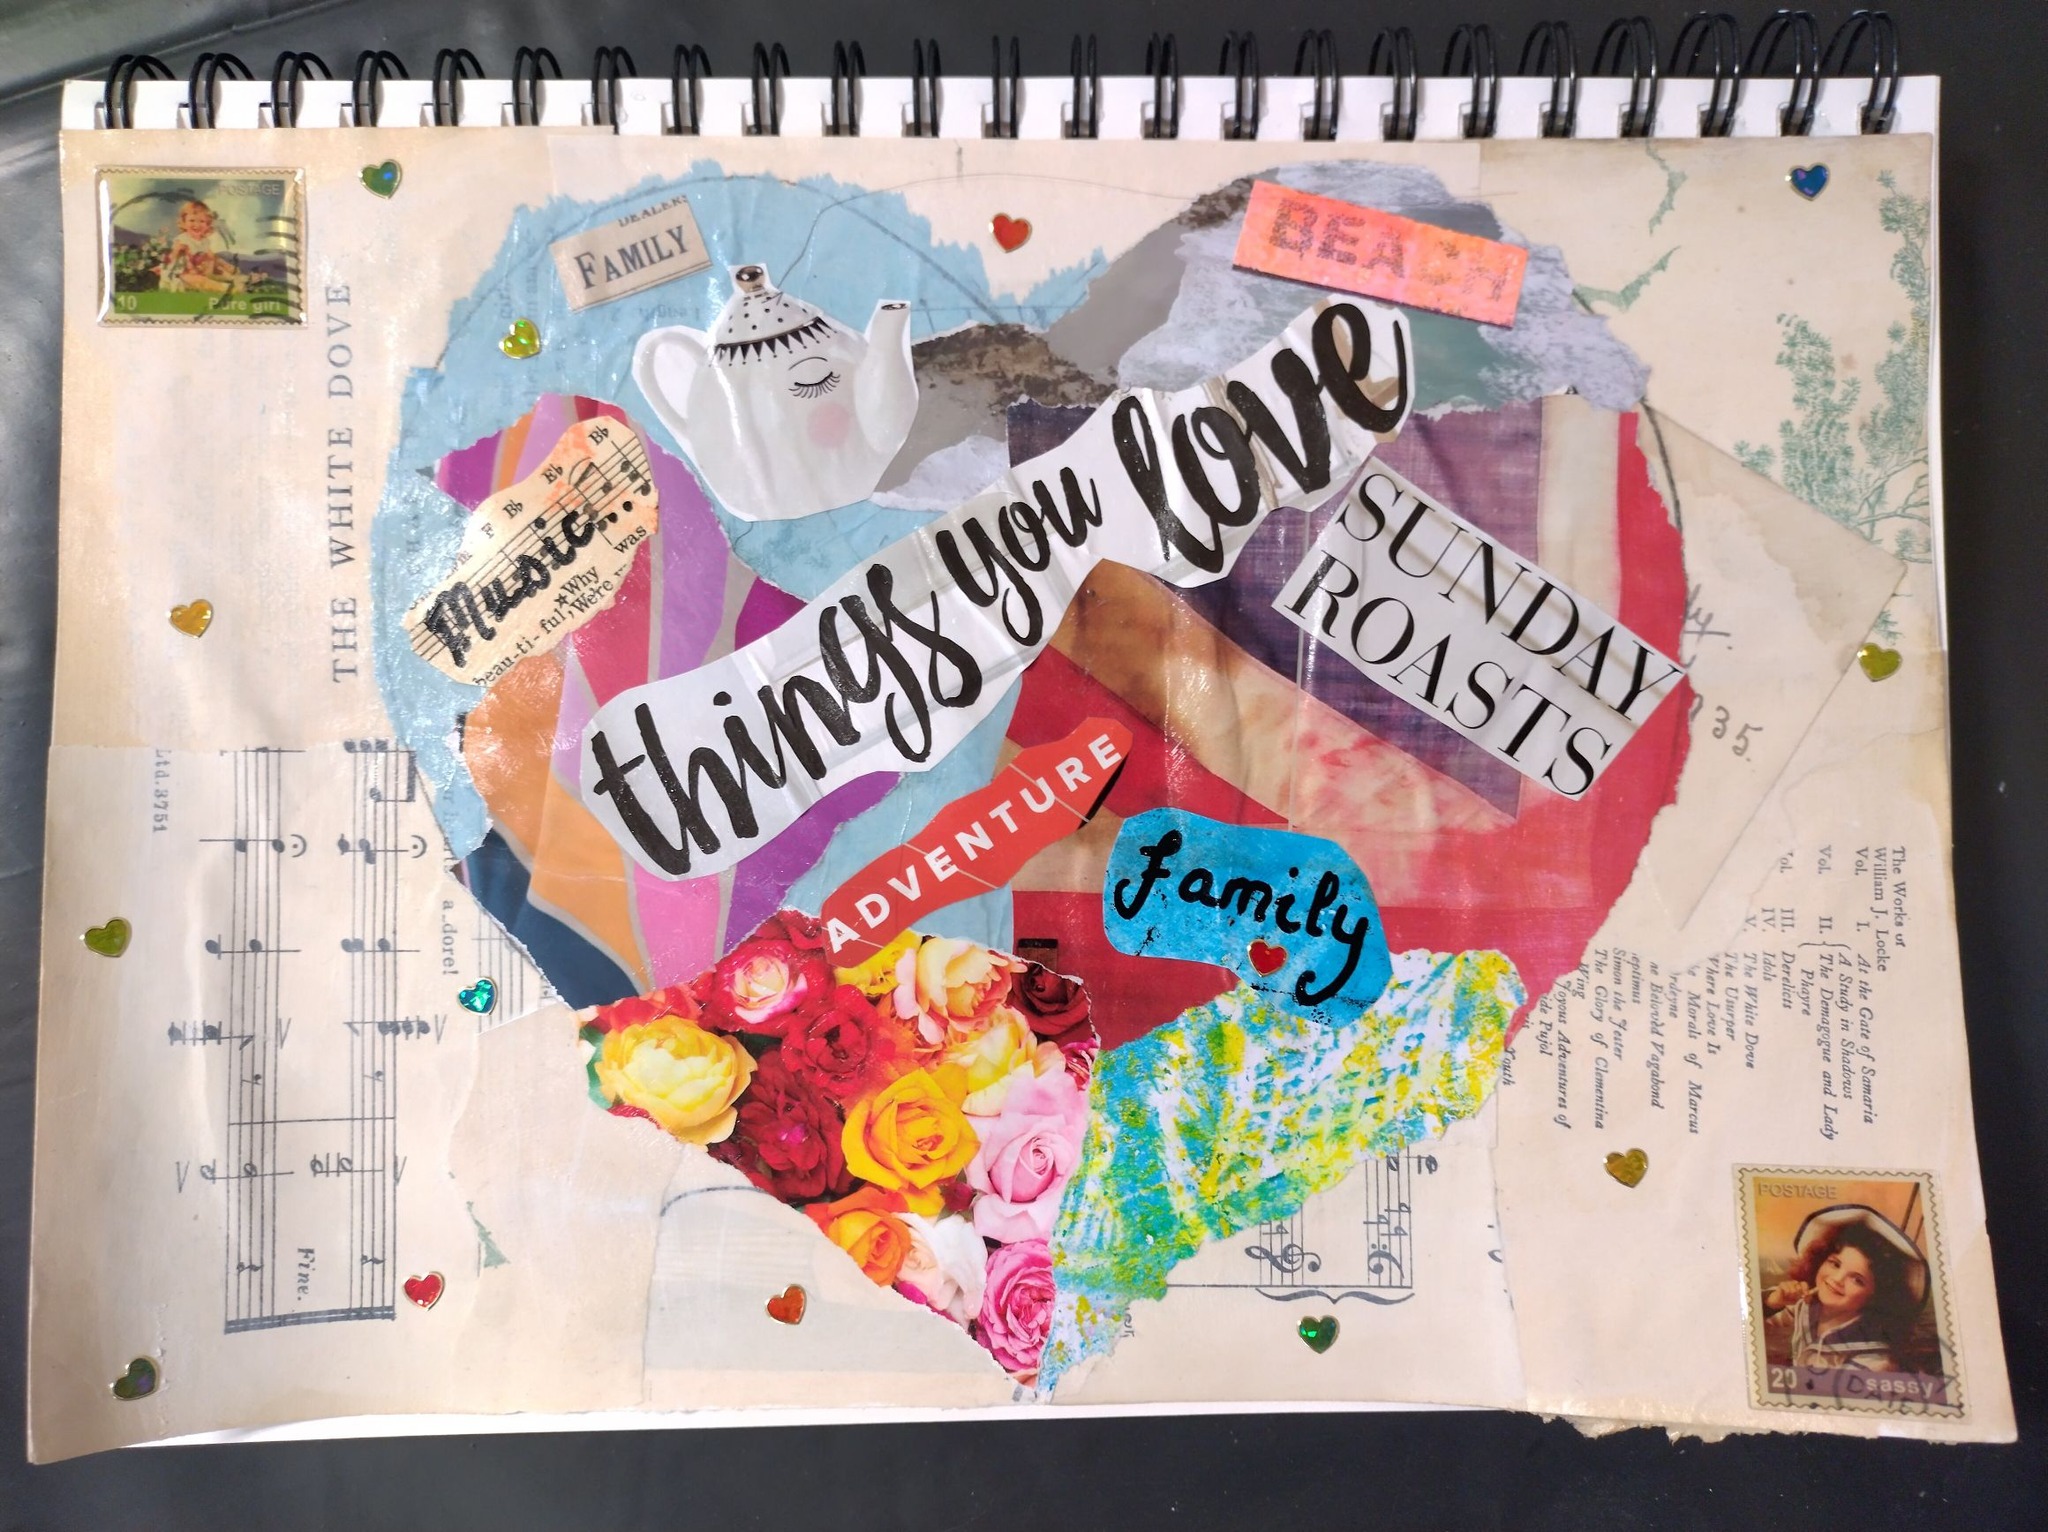 POSTAGE
10 Pure girl
THE WHITE DOVE
DEALERS
FAMILY
BEACH
things you love
Bb
Eb
Bb
F
Music...
was
Why
beau-ti-ful, We're
SUNDAY
ROASTS
ADVENTURE
family
Ltd. 3751
a_dore!
Fine.
35.
The Works of
William J. Locke
Vol. I. At the Gate of Samaria
A Study in Shadows
Vol. II. The Demagogue and Lady
Phayre
Vol. III. Derelicts
IV. Idols
V. The White Dove
The Usurper
Where Love Is
Morals of Marcus
ne Beloved Vagabond
Simon the Jester
The Glory of Clementina
Wing
Joyous Adventures of
ide Pujol
POSTAGE
20 sassy